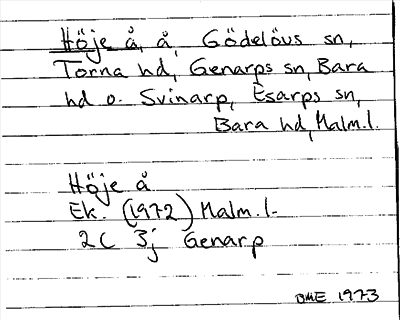 Höje å, å, Gödelövs sn,
Torna hd, Genarps sn, Bara
hd o. Svinarp, Esarps sn,
Bara hd, Malm.l.
Höje å
Ek. (1972) Malm.l.
2C 3j Genarp
BME 1973